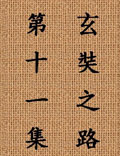 玄奘之路
第十一集